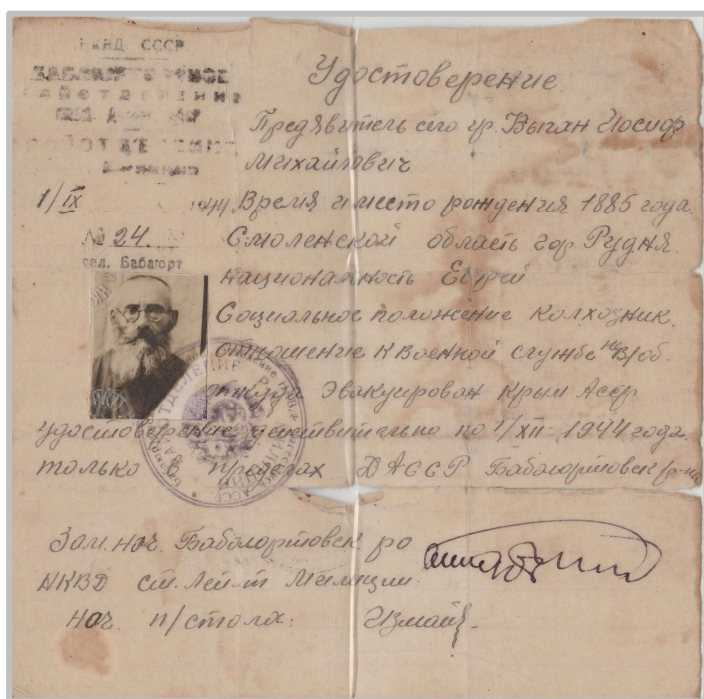 НКВД СССР
БАБАЮРТОВСКОЕ
РАЙОТДЕЛЕНИЕ
1/IX 1944
№ 24.
сел. Бабаюрт
Удостоверение
Предявитель сего гр. Выган Иосиф
Михайлович
Время и место рождения 1885 года.
Смоленской область гор. Рудня.
национальность Еврей
Социальное положение колхозник.
отношение к Военной службе не в/об.
откуда Эвакуирован Крым Асср
удостоверение действительно по 1/XII-1944 года.
только в пределах ДАССР Бабаюртовск р-на
Зам. нач. Бабаюртовск ро
НКВД ст. Лей-т Милиции.
Нач. п/стола: